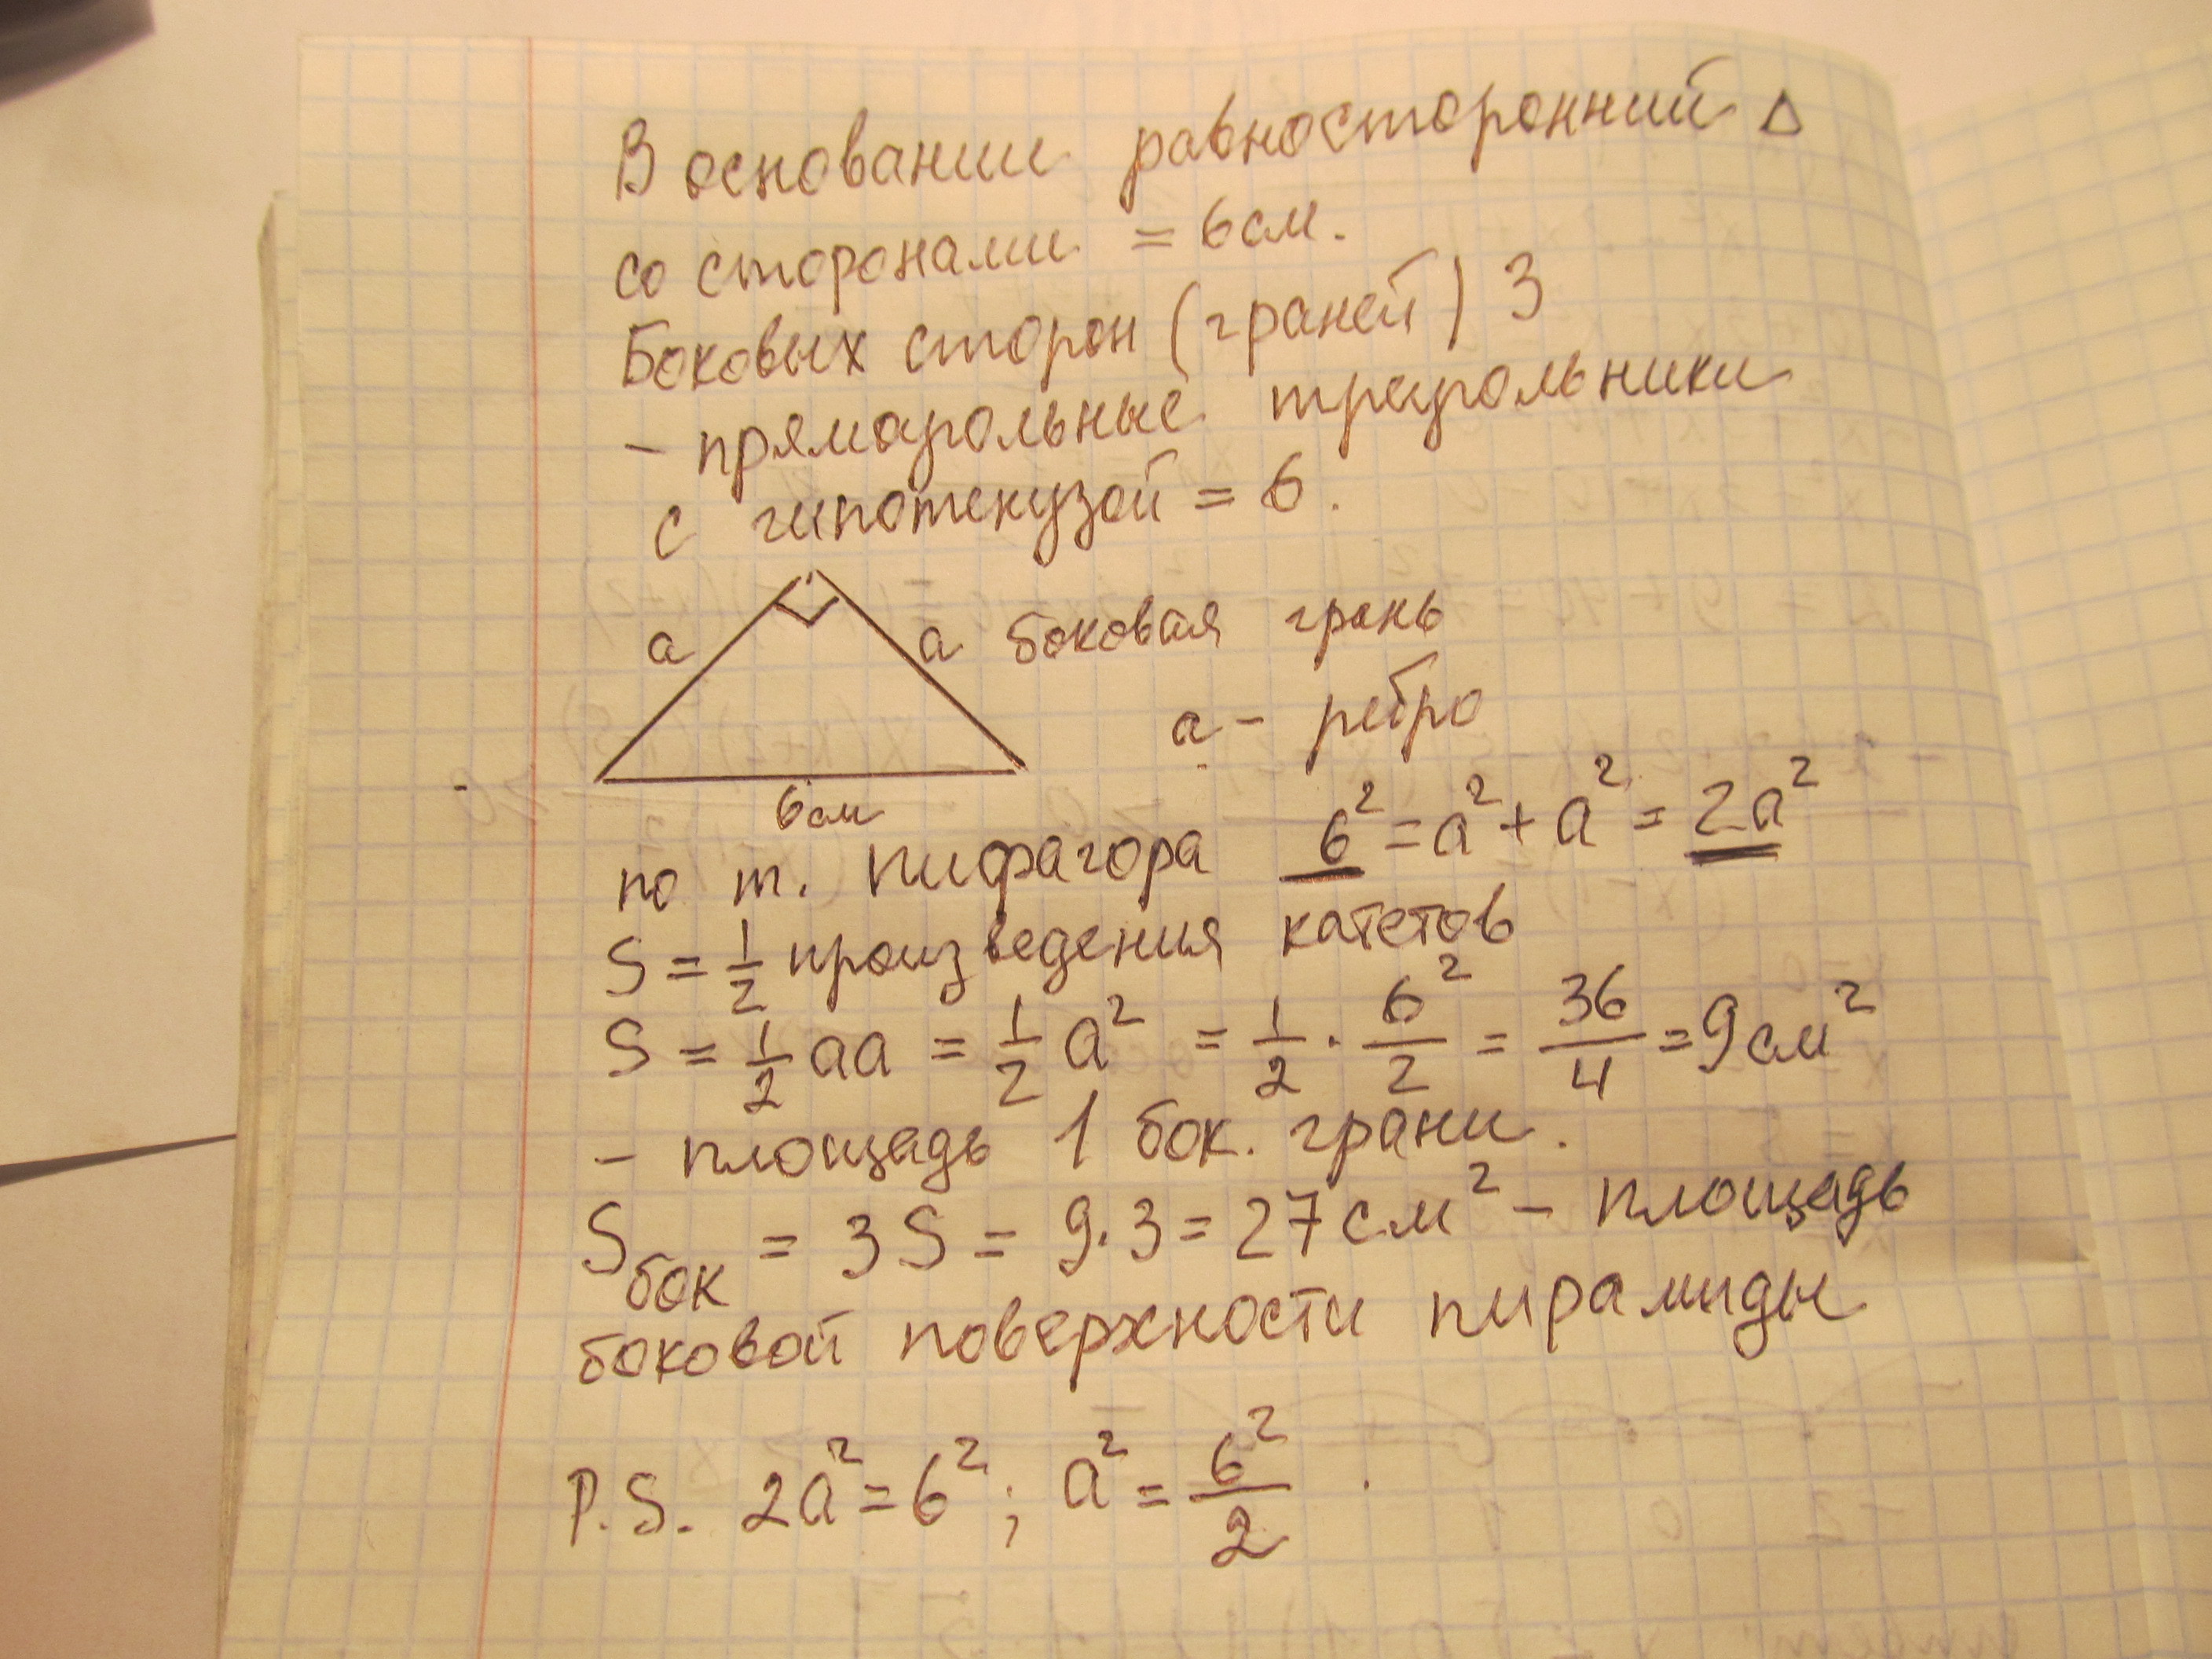 В основании равносторонний △
со сторонами = 6 см.
Боковых сторон (граней) 3
- прямоугольные треугольники
с гипотенузой = 6.
a a боковая грань
a - ребро
6 см
по т. пифагора 6² = a² + a² = 2a²
S = 1/2 произведения катетов
S = 1/2 aa = 1/2 a² = 1/2 · 6²/2 = 36/4 = 9 см²
- площадь 1 бок. грани.
Sбок = 3S = 9·3 = 27 см² - площадь
боковой поверхности пирамиды
P.S. 2a² = 6² ; a² = 6²/2 .